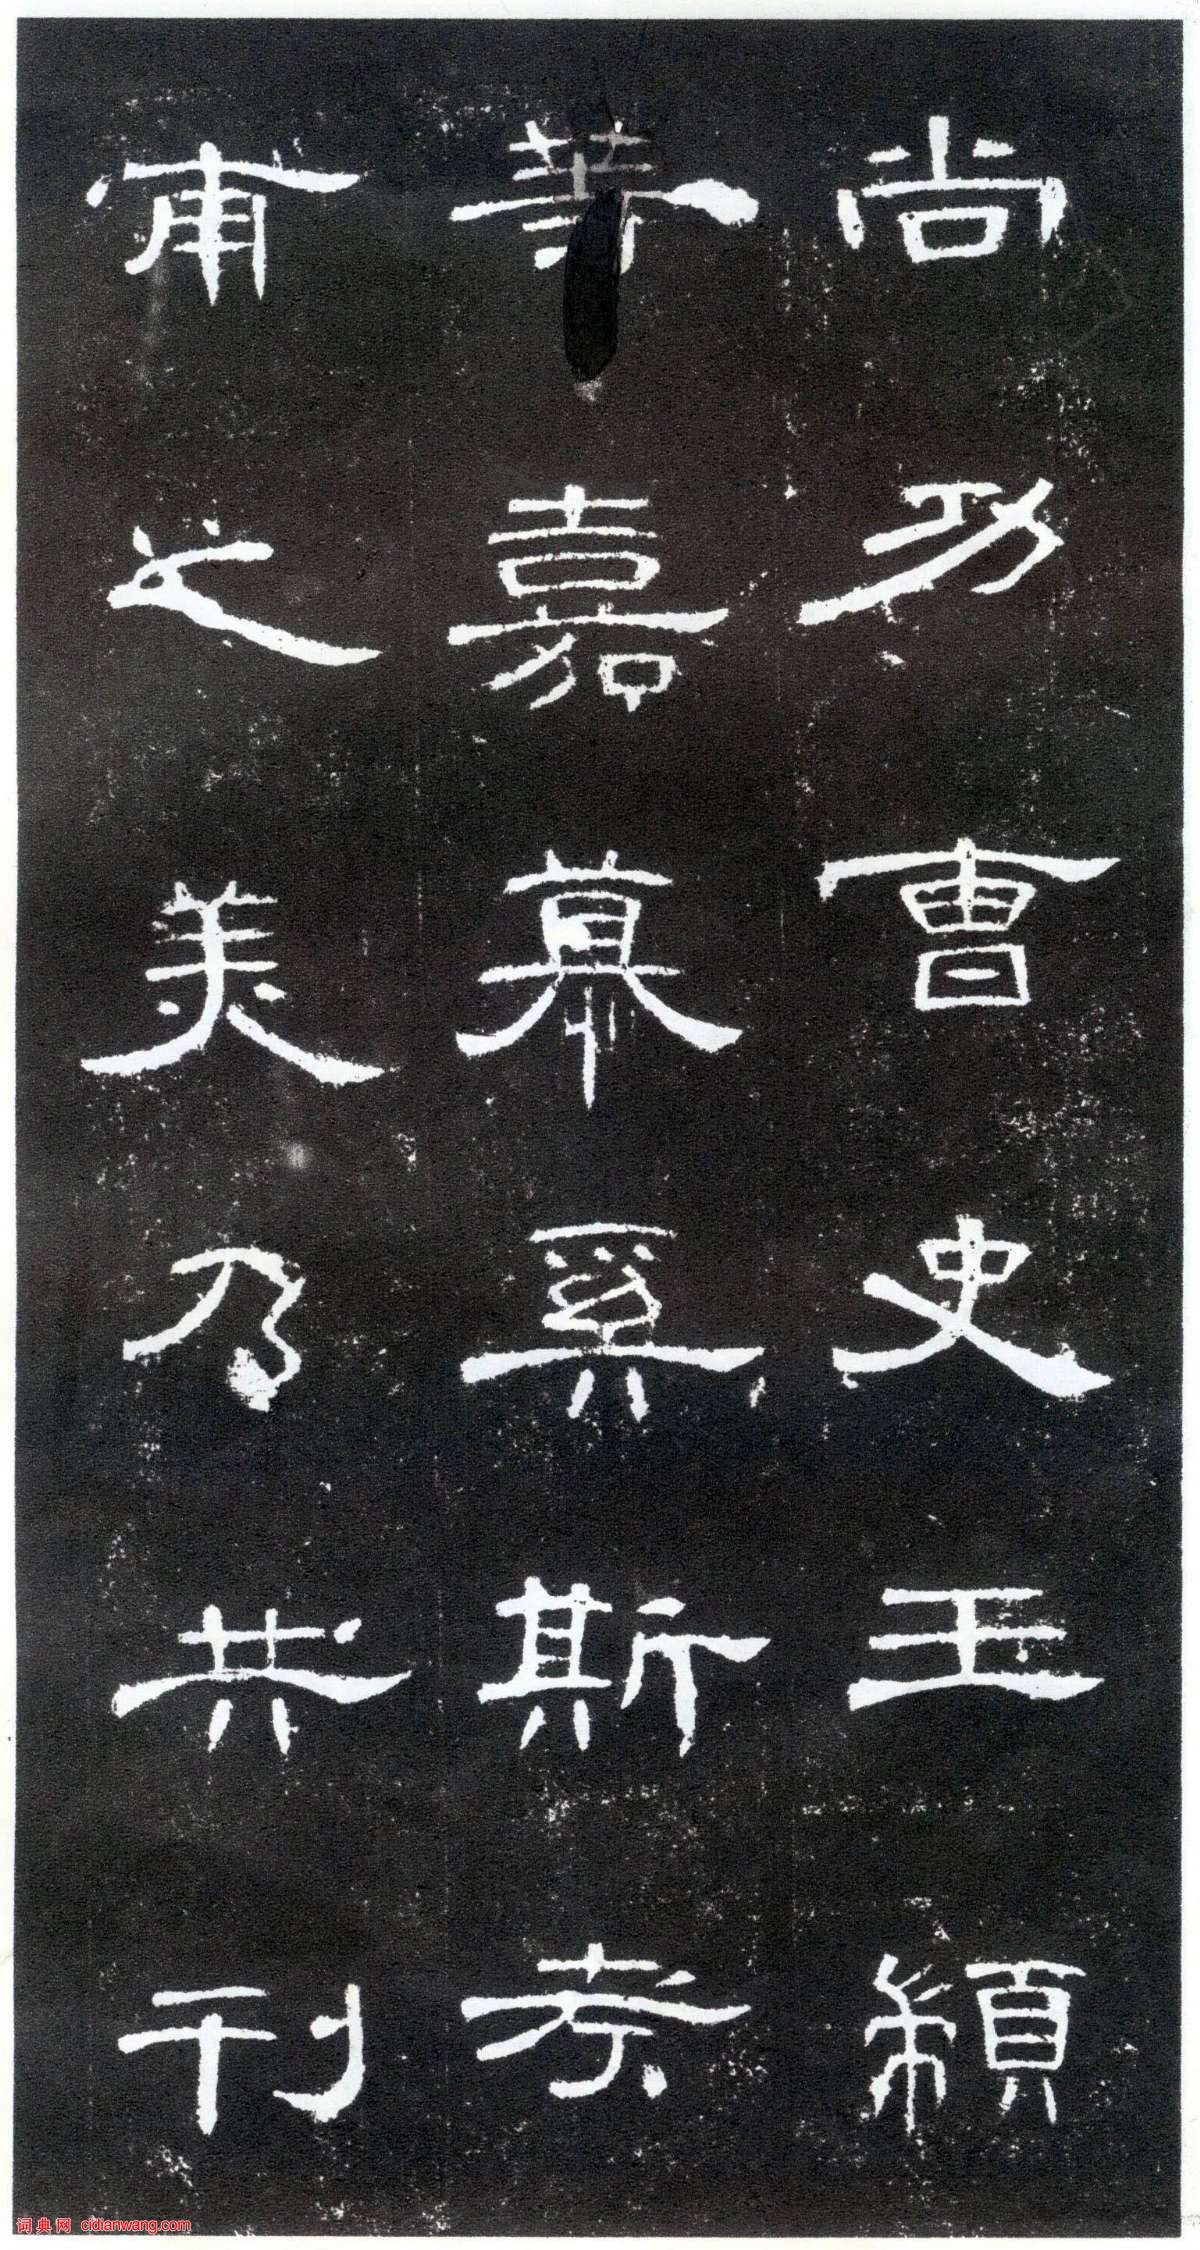 尚功曹史王顓
等嘉慕奚斯考
甫之美乃共刊
词典网 cidianwang.com